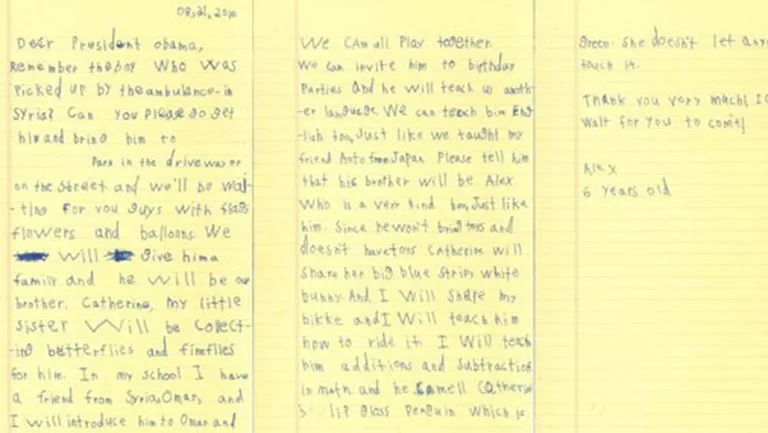 08,21,2016
Dear President obama,
Remember the boy who was
Picked up by the ambulance in
Syria? Can you Please go get
him and bring him to
Park in the driveway or
on the street and we'll be wai-
-ting for you guys with flags
flowers and balloons. We
will give him a
family and he will be our
brother. Catherine, my little
sister will be collect-
-ing butterflies and fireflies
for him. In my school I have
a friend from Syria, Omar, and
I will introduce him to Omar and
We can all Play together.
We can invite him to birthday
Parties and he will teach us anoth-
-er language. We can teach him Eng-
-lish too, Just like we taught my
friend Aoto from Japan. Please tell him
that his brother will be Alex
Who is a very kind boy, Just like
him. Since he won't bring toys and
doesn't have toys Catherine will
Share her big blue stripy white
bunny. And I will share my
bike and I will teach him
how to ride it. I will teach
him additions and subtractions
in math. and he smell Catherine
's lip gloss Penguin which is
green. She doesn't let any
touch it.
Thank you very much! I
wait for you to come!
Alex
6 years old